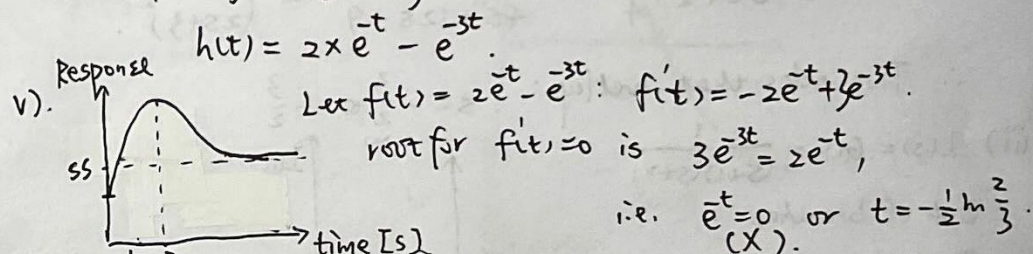 h(t) = 2 × e^{-t} - e^{-3t}.
v). Response
Let f(t) = 2e^{-t} - e^{-3t} : f'(t) = -2e^{-t} + 3e^{-3t}.
root for f'(t) = 0 is 3e^{-3t} = 2e^{-t},
ss
i.e. e^{-t} = 0 or t = -\frac{1}{2} ln \frac{2}{3}.
(X).
time [s]